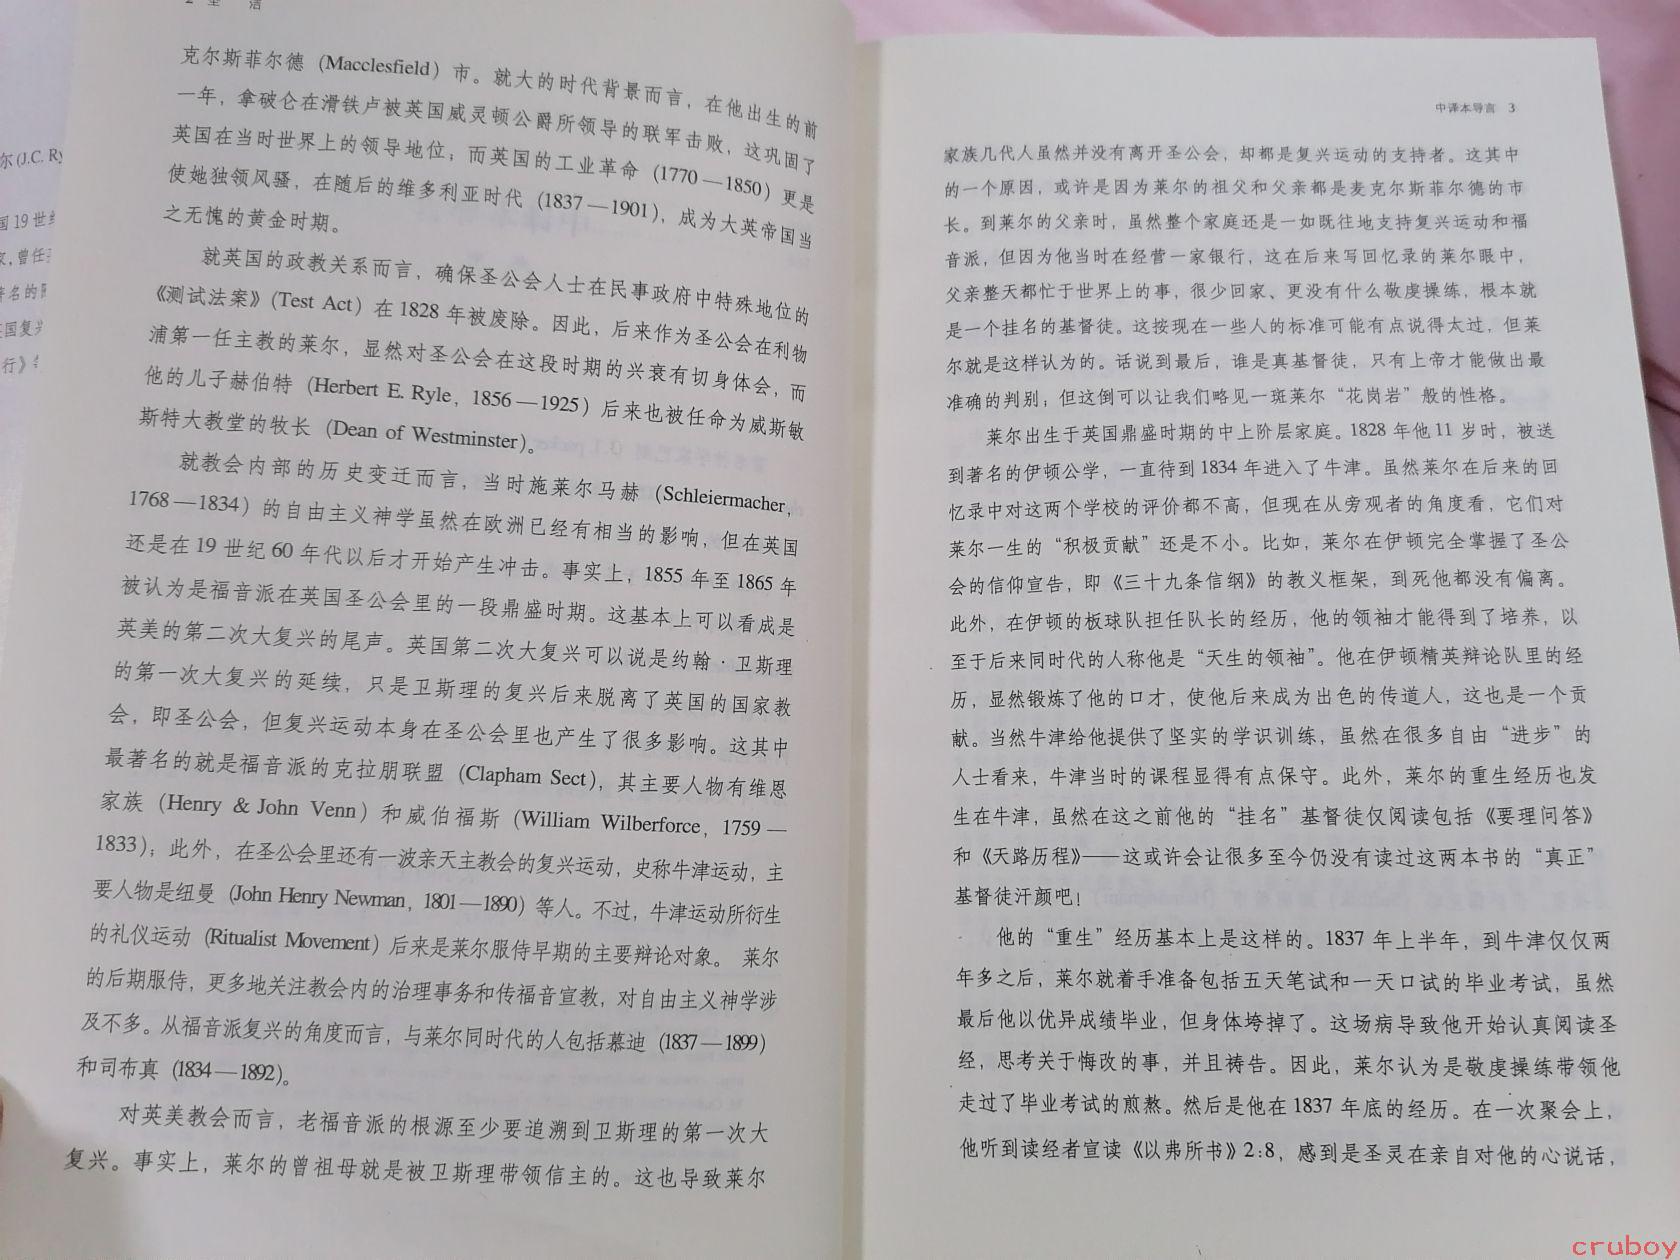 2 圣 洁
克尔斯菲尔德（Macclesfield）市。就大的时代背景而言，在他出生的前
一年，拿破仑在滑铁卢被英国威灵顿公爵所领导的联军击败，这巩固了
英国在当时世界上的领导地位；而英国的工业革命（1770—1850）更是
使她独领风骚，在随后的维多利亚时代（1837—1901），成为大英帝国当
之无愧的黄金时期。
就英国的政教关系而言，确保圣公会人士在民事政府中特殊地位的
《测试法案》(Test Act) 在 1828 年被废除。因此，后来作为圣公会在利物
浦第一任主教的莱尔，显然对圣公会在这段时期的兴衰有切身体会，而
他的儿子赫伯特（Herbert E. Ryle，1856—1925）后来也被任命为威斯敏
斯特大教堂的牧长（Dean of Westminster）。
就教会内部的历史变迁而言，当时施莱尔马赫（Schleiermacher，
1768—1834）的自由主义神学虽然在欧洲已经有相当的影响，但在英国
还是在 19 世纪 60 年代以后才开始产生冲击。事实上，1855 年至 1865 年
被认为是福音派在英国圣公会里的一段鼎盛时期。这基本上可以看成是
英美的第二次大复兴的尾声。英国第二次大复兴可以说是约翰·卫斯理
的第一次大复兴的延续，只是卫斯理的复兴后来脱离了英国的国家教
会，即圣公会，但复兴运动本身在圣公会里也产生了很多影响。这其中
最著名的就是福音派的克拉朋联盟（Clapham Sect），其主要人物有维恩
家族（Henry & John Venn）和威伯福斯（William Wilberforce，1759—
1833）；此外，在圣公会里还有一波亲天主教会的复兴运动，史称牛津运动，主
要人物是纽曼（John Henry Newman，1801—1890）等人。不过，牛津运动所衍生
的礼仪运动（Ritualist Movement）后来是莱尔服侍早期的主要辩论对象。 莱尔
的后期服侍，更多地关注教会内的治理事务和传福音宣教，对自由主义神学涉
及不多。从福音派复兴的角度而言，与莱尔同时代的人包括慕迪（1837—1899）
和司布真（1834—1892）。
对英美教会而言，老福音派的根源至少要追溯到卫斯理的第一次大
复兴。事实上，莱尔的曾祖母就是被卫斯理带领信主的。这也导致莱尔
中译本导言 3
家族几代人虽然并没有离开圣公会，却都是复兴运动的支持者。这其中
的一个原因，或许是因为莱尔的祖父和父亲都是麦克尔斯菲尔德的市
长。到莱尔的父亲时，虽然整个家庭还是一如既往地支持复兴运动和福
音派，但因为他当时在经营一家银行，这在后来写回忆录的莱尔眼中，
父亲整天都忙于世界上的事，很少回家、更没有什么敬虔操练，根本就
是一个挂名的基督徒。这按现在一些人的标准可能有点说得太过，但莱
尔就是这样认为的。话说到最后，谁是真基督徒，只有上帝才能做出最
准确的判别；但这倒可以让我们略见一斑莱尔“花岗岩”般的性格。
莱尔出生于英国鼎盛时期的中上阶层家庭。1828 年他 11 岁时，被送
到著名的伊顿公学，一直待到 1834 年进入了牛津。虽然莱尔在后来的回
忆录中对这两个学校的评价都不高，但现在从旁观者的角度看，它们对
莱尔一生的“积极贡献”还是不小。比如，莱尔在伊顿完全掌握了圣公
会的信仰宣告，即《三十九条信纲》的教义框架，到死他都没有偏离。
此外，在伊顿的板球队担任队长的经历，他的领袖才能得到了培养，以
至于后来同时代的人称他是“天生的领袖”。他在伊顿精英辩论队里的经
历，显然锻炼了他的口才，使他后来成为出色的传道人，这也是一个贡
献。当然牛津给他提供了坚实的学识训练，虽然在很多自由“进步”的
人士看来，牛津当时的课程显得有点保守。此外，莱尔的重生经历也发
生在牛津，虽然在这之前他的“挂名”基督徒仅阅读包括《要理问答》
和《天路历程》——这或许会让很多至今仍没有读过这两本书的“真正”
基督徒汗颜吧！
他的“重生”经历基本上是这样的。1837 年上半年，到牛津仅仅两
年多之后，莱尔就着手准备包括五天笔试和一天口试的毕业考试，虽然
最后他以优异成绩毕业，但身体垮掉了。这场病导致他开始认真阅读圣
经，思考关于悔改的事，并且祷告。因此，莱尔认为是敬虔操练带领他
走过了毕业考试的煎熬。然后是他在 1837 年底的经历。在一次聚会上，
他听到读经者宣读《以弗所书》2:8，感到是圣灵在亲自对他的心说话，
尔(J.C. Ry
国 19 世纪
家，曾任
著名的
英国复兴
行》等
cruboy